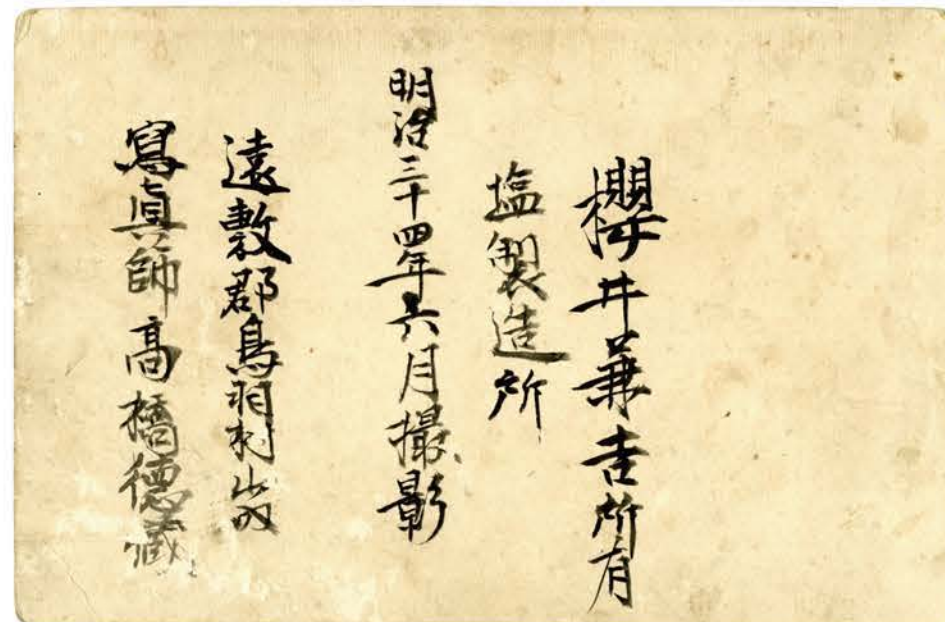 櫻井兼吉所有
塩製造所
明治三十四年六月撮影
遠敷郡鳥羽村山内
寫真師高橋德藏